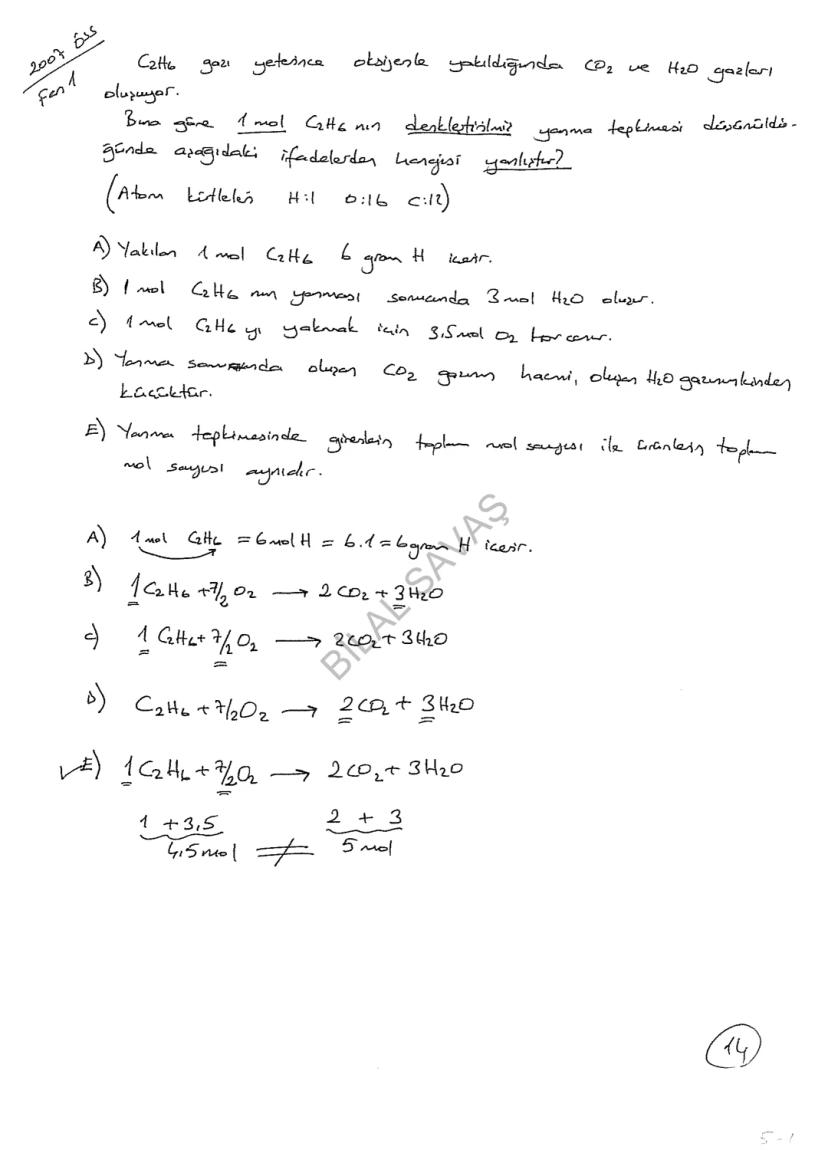 2007 ÖSS
Fen 1
C2H6 gazı yeterince oksijenle yakıldığında CO2 ve H2O gazları
oluşuyor.
Buna göre 1 mol C2H6 nın denkleştirilmiş yanma tepkimesi düşünüldü-
ğünde aşağıdaki ifadelerden hangisi yanlıştır?
(Atom kütleleri H:1 O:16 C:12)
A) Yakılan 1 mol C2H6 6 gram H içerir.
B) 1 mol C2H6 nın yanması sonucunda 3 mol H2O oluşur.
C) 1 mol C2H6 yı yakmak için 3,5 mol O2 harcanır.
D) Yanma sonucunda oluşan CO2 gazının hacmi, oluşan H2O gazınınkinden
küçüktür.
E) Yanma tepkimesinde girenlerin toplam mol sayısı ile ürünlerin toplam
mol sayısı aynıdır.
A) 1 mol C2H6 = 6 mol H = 6.1 = 6 gram H içerir.
B) 1 C2H6 + 7/2 O2 → 2 CO2 + 3 H2O
C) 1 C2H6 + 7/2 O2 → 2CO2 + 3H2O
D) C2H6 + 7/2 O2 → 2CO2 + 3H2O
✓E) 1 C2H6 + 7/2 O2 → 2CO2 + 3H2O
1 + 3,5 2 + 3
4,5 mol ≠ 5 mol
BİLAL SAVAŞ
14
5-1